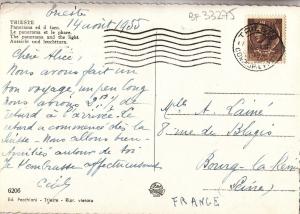 Trieste
14 août 1955
BF 33295
TRIESTE
Panorama ed il faro.
Le panorama et le phare.
The panorama and the light
Aussicht und leuchtturm.
Chère Alice,
Nous avons fait un
bon voyage, un peu long
nous avons
retard à l'arrivée. Le
retard a commencé dès la
Suisse. Nous allons bien.
Amitiés autour de toi
Je t'embrasse affectueusement
Cécily
Mlle A. Lainé
8 rue de Blagis
Bourg-la-Reine
(Seine)
FRANCE
6206
Ed. Pecchiari - Trieste - Ripr. vietata